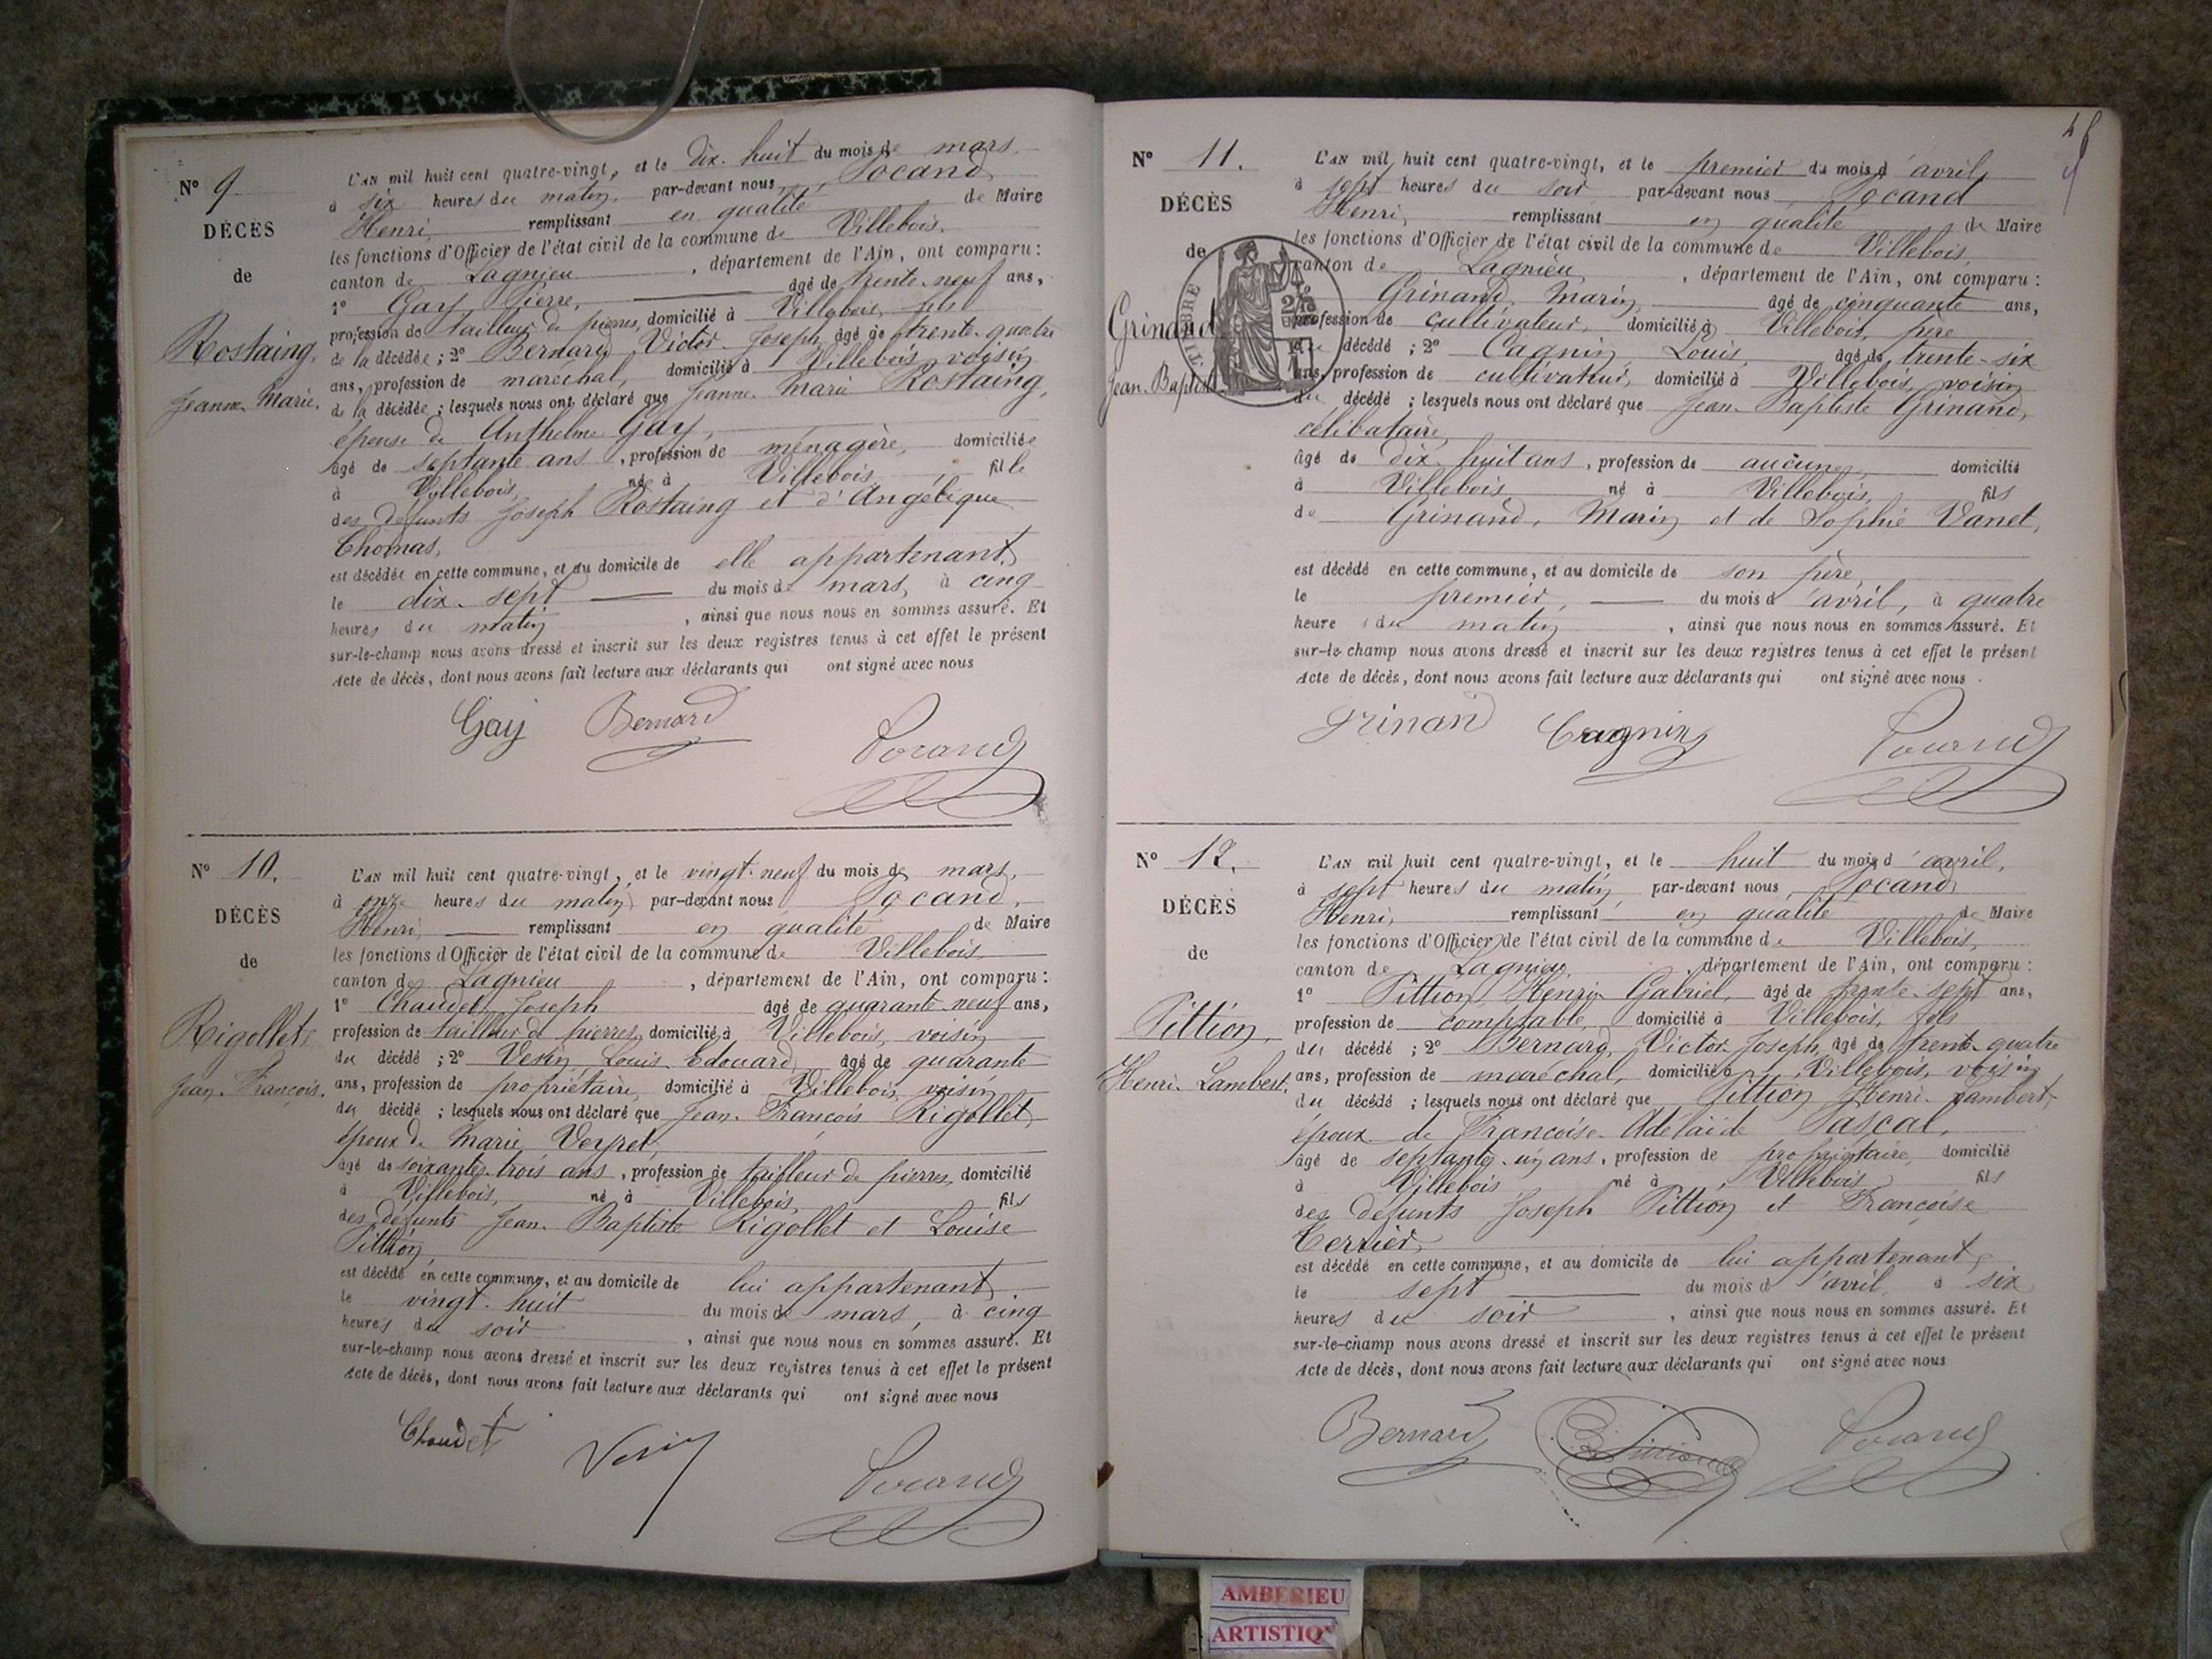 N° 9
DÉCÈS
de
Rostaing,
Jeanne-Marie.
L'AN mil huit cent quatre-vingt, et le dix-huit du mois de mars,
à six heures du matin, par-devant nous, Pocand
Henri, remplissant en qualité de Maire
les fonctions d'Officier de l'état civil de la commune de Villebois,
canton de Lagnieu, département de l'Ain, ont comparu :
1° Gay Pierre, âgé de trente-neuf ans,
profession de tailleur de pierres, domicilié à Villebois, fils
de la décédée ; 2° Bernard, Victor-Joseph, âgé de trente-quatre
ans, profession de maréchal, domicilié à Villebois, voisin
de la décédée ; lesquels nous ont déclaré que Jeanne-Marie Rostaing,
épouse de Anthelme Gay,
âgé de septante ans, profession de ménagère, domiciliée
à Villebois, né à Villebois, fille
des défunts Joseph Rostaing et d'Angélique
Thomas,
est décédée en cette commune, et au domicile de elle appartenant,
le dix-sept du mois de mars, à cinq
heures du matin, ainsi que nous nous en sommes assuré. Et
sur-le-champ nous avons dressé et inscrit sur les deux registres tenus à cet effet le présent
Acte de décès, dont nous avons fait lecture aux déclarants qui ont signé avec nous
Gay Bernard
Pocand
N° 10.
DÉCÈS
de
Rigollet,
Jean-François.
L'AN mil huit cent quatre-vingt, et le vingt-neuf du mois de mars,
à onze heures du matin, par-devant nous Pocand,
Henri, remplissant en qualité de Maire
les fonctions d'Officier de l'état civil de la commune de Villebois
canton de Lagnieu, département de l'Ain, ont comparu :
1° Chaudet, Joseph âgé de quarante-neuf ans,
profession de tailleur de pierres, domicilié à Villebois, voisin
du décédé ; 2° Vesin, Louis-Edouard, âgé de quarante
ans, profession de propriétaire, domicilié à Villebois, voisin
du décédé ; lesquels nous ont déclaré que Jean-François Rigollet,
époux de Marie Veyret,
âgé de soixante-trois ans, profession de tailleur de pierres, domicilié
à Villebois, né à Villebois, fils
des défunts Jean-Baptiste Rigollet et Louise
Pittion,
est décédé en cette commune, et au domicile de lui appartenant,
le vingt-huit du mois de mars, à cinq
heures du soir, ainsi que nous nous en sommes assuré. Et
sur-le-champ nous avons dressé et inscrit sur les deux registres tenus à cet effet le présent
Acte de décès, dont nous avons fait lecture aux déclarants qui ont signé avec nous
Chaudet Vesin
Pocand
N° 11.
DÉCÈS
de
Grinand
Jean-Baptiste
TIMBRE
L'AN mil huit cent quatre-vingt, et le premier du mois d'avril,
à sept heures du soir par-devant nous Pocand
Henri, remplissant en qualité de Maire
les fonctions d'Officier de l'état civil de la commune de Villebois,
canton de Lagnieu, département de l'Ain, ont comparu :
Grinand, Marin, âgé de cinquante ans,
profession de cultivateur, domicilié à Villebois, père
du décédé ; 2° Cagnin, Louis, âgé de trente-six
ans, profession de cultivateur, domicilié à Villebois, voisin
du décédé ; lesquels nous ont déclaré que Jean-Baptiste Grinand,
célibataire,
âgé de dix-huit ans, profession de aucune, domicilié
à Villebois né à Villebois, fils
de Grinand, Marin et de Sophie Vanet,
est décédé en cette commune, et au domicile de son père,
le premier, du mois d'avril, à quatre
heure du matin, ainsi que nous nous en sommes assuré. Et
sur-le-champ nous avons dressé et inscrit sur les deux registres tenus à cet effet le présent
Acte de décès, dont nous avons fait lecture aux déclarants qui ont signé avec nous.
Grinand Cagnin
Pocand
N° 12.
DÉCÈS
de
Pittion,
Henri-Lambert.
L'AN mil huit cent quatre-vingt, et le huit du mois d'avril,
à sept heures du matin, par-devant nous, Pocand
Henri, remplissant en qualité de Maire
les fonctions d'Officier de l'état civil de la commune de Villebois,
canton de Lagnieu, département de l'Ain, ont comparu :
1° Pittion, Henri-Gabriel, âgé de trente-sept ans,
profession de comptable, domicilié à Villebois, fils
du décédé ; 2° Bernard, Victor-Joseph, âgé de trente-quatre
ans, profession de maréchal, domicilié à Villebois, voisin
du décédé ; lesquels nous ont déclaré que Pittion Henri-Lambert,
époux de Françoise-Adélaïde Pascal,
âgé de septante-un ans, profession de propriétaire, domicilié
à Villebois né à Villebois fils
des défunts Joseph Pittion et Françoise
Terrier,
est décédé en cette commune, et au domicile de lui appartenant,
le sept du mois d'avril, à six
heures du soir, ainsi que nous nous en sommes assuré. Et
sur-le-champ nous avons dressé et inscrit sur les deux registres tenus à cet effet le présent
Acte de décès, dont nous avons fait lecture aux déclarants qui ont signé avec nous
Bernard Pittion Pocand
AMBERIEU
ARTISTIQ